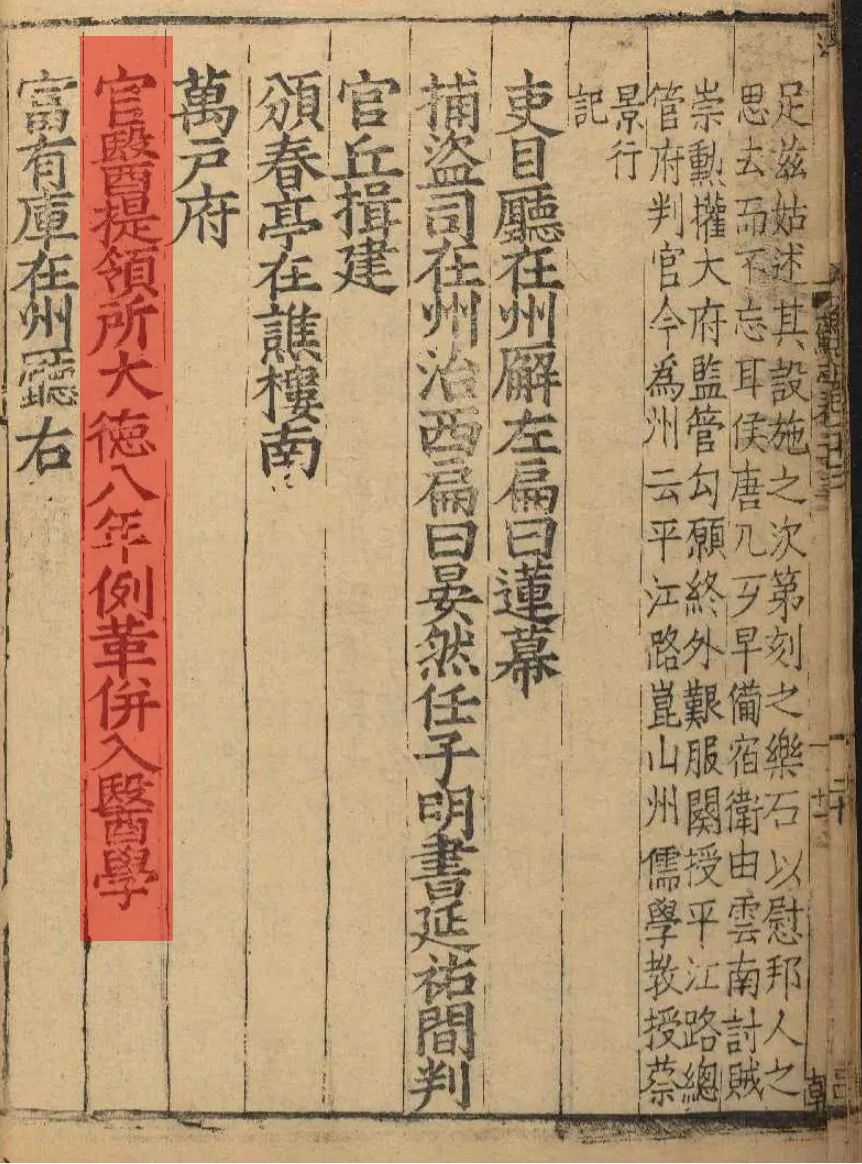 足兹姑述其設施之次第刻之樂石以慰邦人之
思去而不忘耳侯唐兀歹早備宿衛由雲南討賊
崇勳擢大府監管勾願終外艱服闋授平江路總
管府判官今為州云平江路崑山州儒學教授蔡
景行
記
吏目廳在州廨左扁曰蓮幕
捕盗司在州治西扁曰晏然任子明書延祐間判
官丘揖建
頒春亭在譙樓南
萬戶府
官醫提領所大徳八年例革併入醫學
富有庫在州廳右